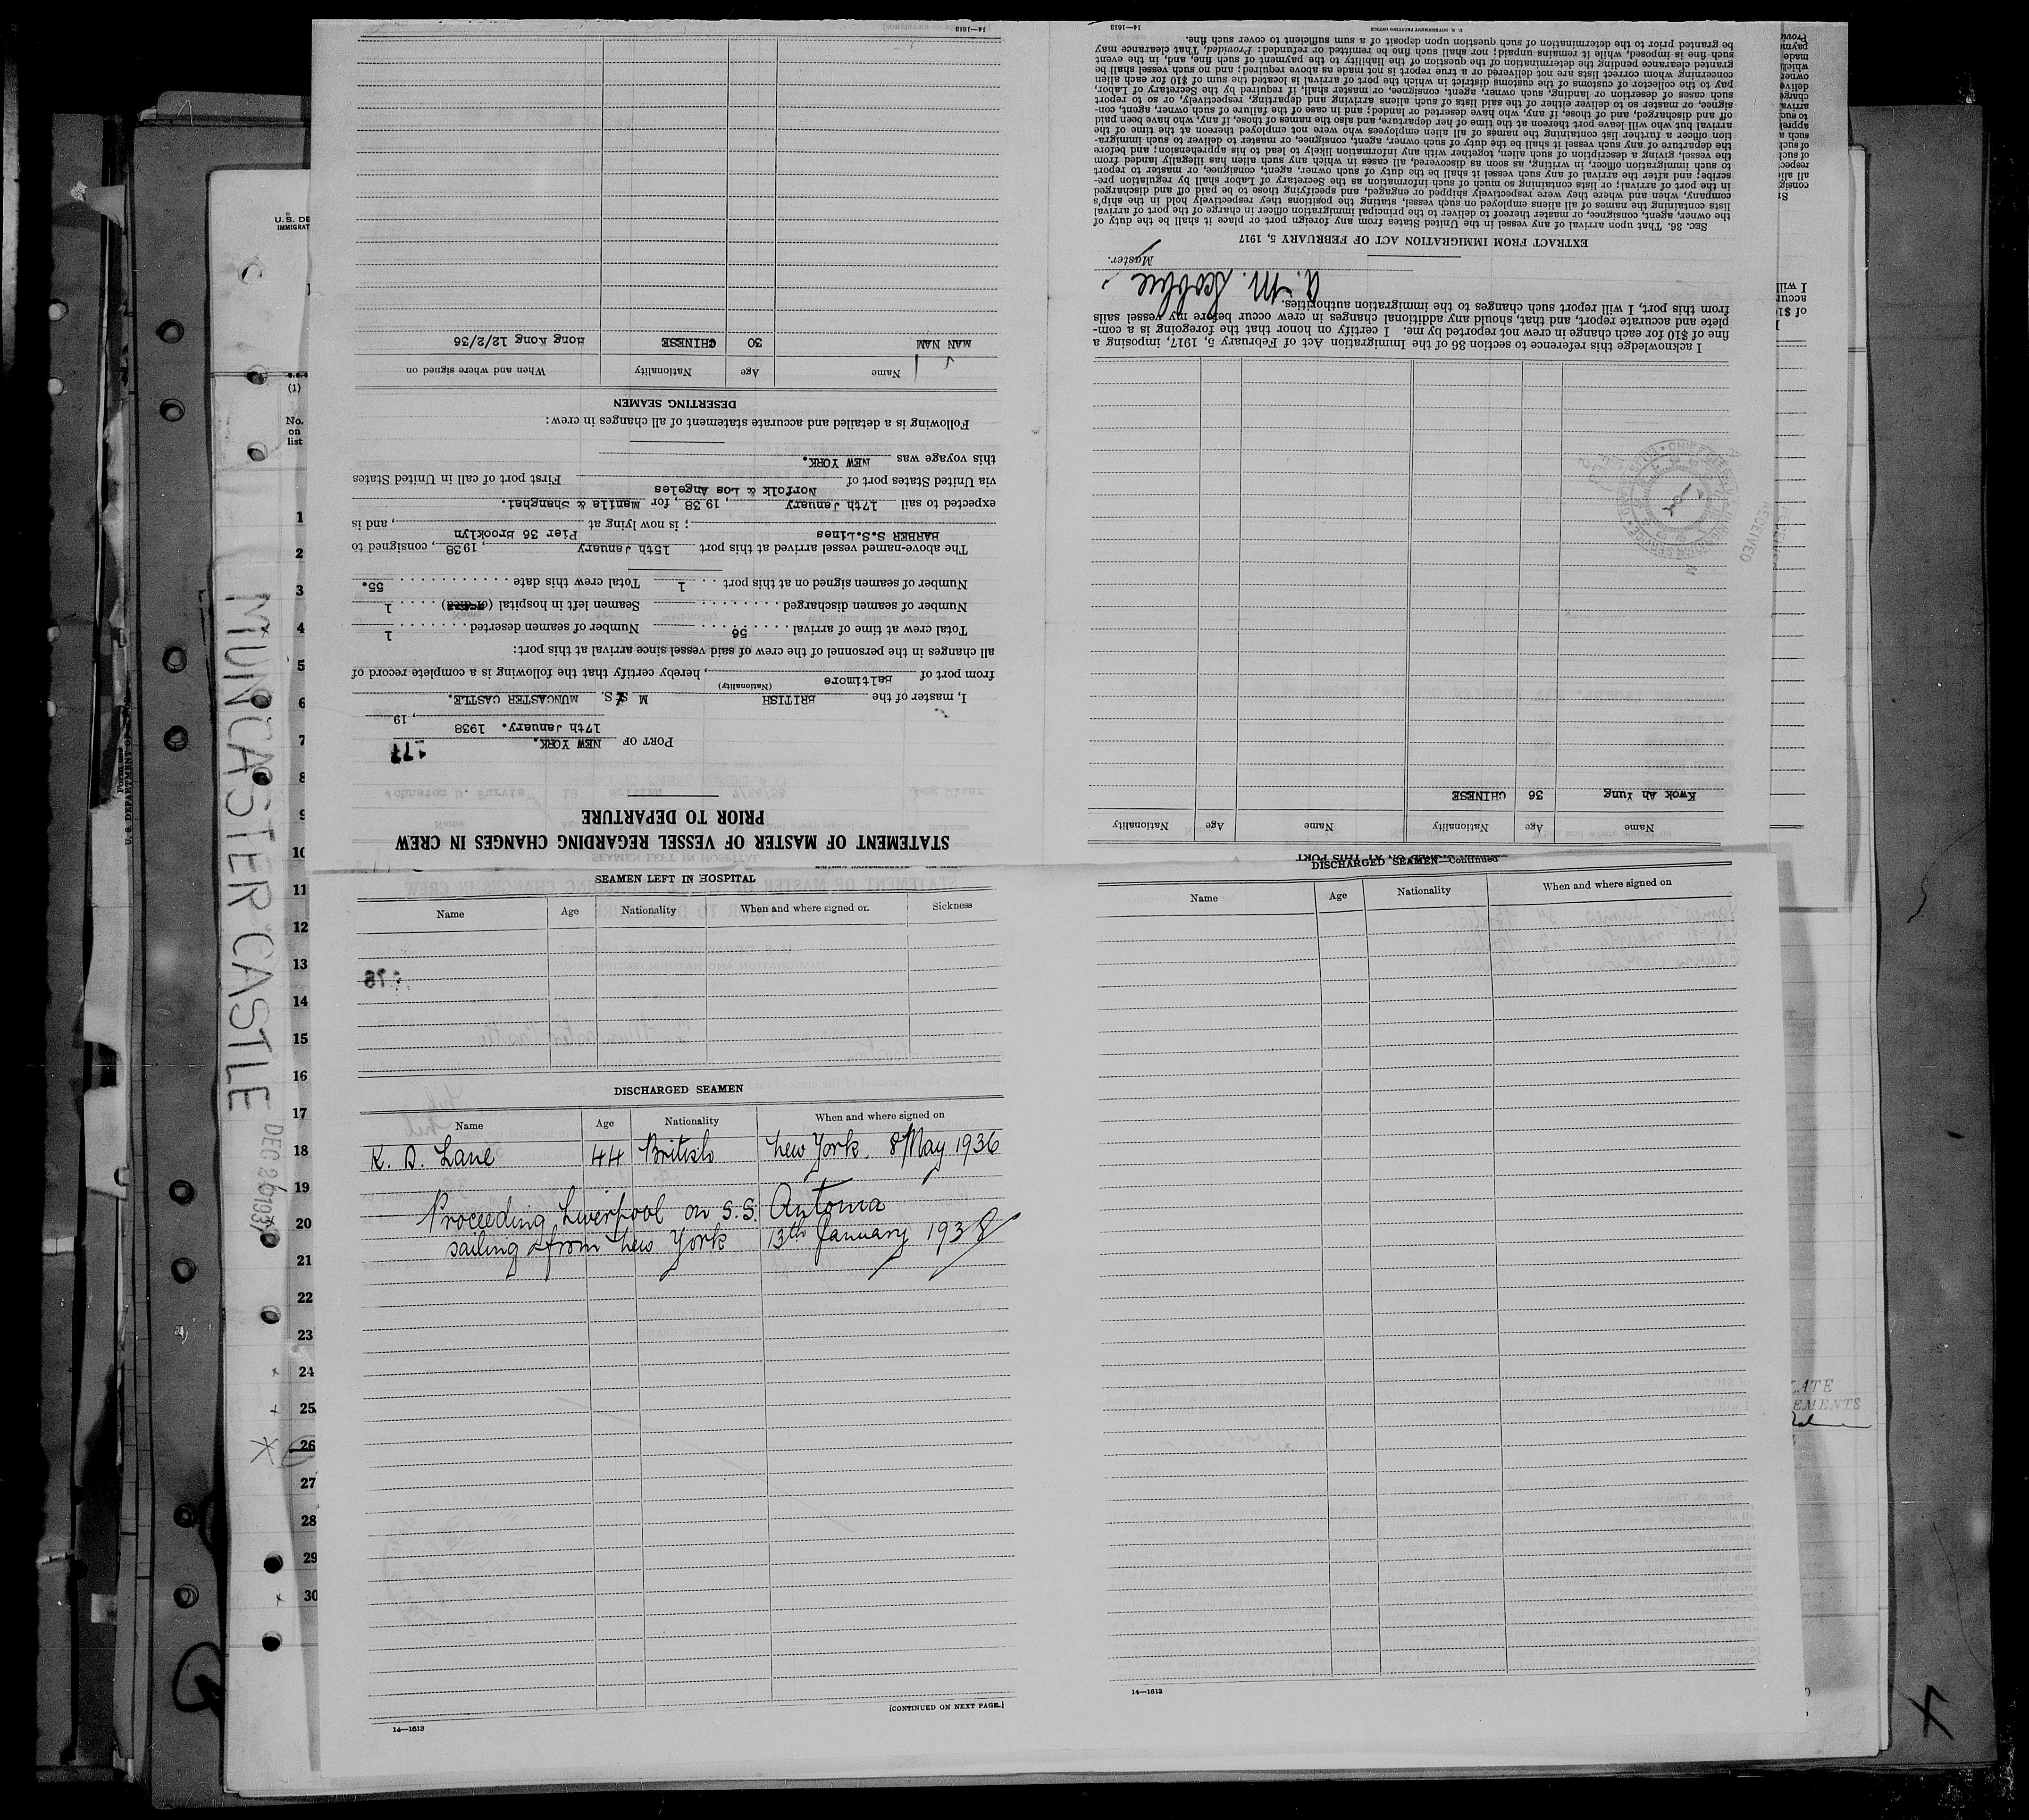 STATEMENT OF MASTER OF VESSEL REGARDING CHANGES IN CREW
PRIOR TO DEPARTURE
177
PORT OF NEW YORK.
17th January. 1938, 19
I, master of the BRITISH M S/S. MUNCASTER CASTLE.
(Nationality)
from port of Baltimore, hereby certify that the following is a complete record of
all changes in the personnel of the crew of said vessel since arrival at this port:
Total crew at time of arrival 56 Number of seamen deserted 1
Number of seamen discharged Seamen left in hospital (or died) 1
Number of seamen signed on at this port 1 Total crew this date 55.
The above-named vessel arrived at this port 15th January, 1938, consigned to
BARBER S.S.Lines; is now lying at Pier 36 Brooklyn, and is
expected to sail 17th January, 1938, for Manila & Shanghai.
via United States port of Norfolk & Los Angeles First port of call in United States
this voyage was NEW YORK.
Following is a detailed and accurate statement of all changes in crew:
DESERTING SEAMEN
Name Age Nationality When and where signed on
MAN NAM 30 CHINESE Hong Kong 12/2/36
14—1613
Name Age Nationality Name Age Nationality
Kwok Ah Yung 36 CHINESE
I acknowledge this reference to section 36 of the Immigration Act of February 5, 1917, imposing a
fine of $10 for each change in crew not reported by me. I certify on honor that the foregoing is a com-
plete and accurate report, and that, should any additional changes in crew occur before my vessel sails
from this port, I will report such changes to the immigration authorities.
Master.
EXTRACT FROM IMMIGRATION ACT OF FEBRUARY 5, 1917
SEC. 36. That upon arrival of any vessel in the United States from any foreign port or place it shall be the duty of
the owner, agent, consignee, or master thereof to deliver to the principal immigration officer in charge of the port of arrival
lists containing the names of all aliens employed on such vessel, stating the positions they respectively hold in the ship's
company, when and where they were respectively shipped or engaged, and specifying those to be paid off and discharged
in the port of arrival; or lists containing so much of such information as the Secretary of Labor shall by regulation pre-
scribe; and after the arrival of any such vessel it shall be the duty of such owner, agent, consignee, or master to report
to such immigration officer, in writing, as soon as discovered, all cases in which any such alien has illegally landed from
the vessel, giving a description of such alien, together with any information likely to lead to his apprehension; and before
the departure of any such vessel it shall be the duty of such owner, agent, consignee, or master to deliver to such immigra-
tion officer a further list containing the names of all alien employees who were not employed thereon at the time of the
arrival but who will leave port thereon at the time of her departure, and also the names of those, if any, who have been paid
off and discharged, and of those, if any, who have deserted or landed; and in case of the failure of such owner, agent, con-
signee, or master so to deliver either of the said lists of such aliens arriving and departing, respectively, or so to report
such cases of desertion or landing, such owner, agent, consignee, or master shall, if required by the Secretary of Labor,
pay to the collector of customs of the customs district in which the port of arrival is located the sum of $10 for each alien
concerning whom correct lists are not delivered or a true report is not made as above required; and no such vessel shall be
granted clearance pending the determination of the question of the liability to the payment of such fine, and, in the event
such fine is imposed, while it remains unpaid; nor shall such fine be remitted or refunded: Provided, That clearance may
be granted prior to the determination of such question upon deposit of a sum sufficient to cover such fine.
14—1613
U. S. GOVERNMENT PRINTING OFFICE
RECEIVED
SEAMEN LEFT IN HOSPITAL
Name Age Nationality When and where signed on. Sickness
DISCHARGED SEAMEN
Name Age Nationality When and where signed on
K. D. Lane 44 British New York. 8 May 1936
Proceeding Liverpool on S.S. Antonia
sailing from New York 13th January 1938
[CONTINUED ON NEXT PAGE.]
14—1613
DISCHARGED SEAMEN—Continued
Name Age Nationality When and where signed on
14—1613
MUNCASTER CASTLE
DEC 26 1937
U.S. DE
IMMIGRAT
(1)
No.
on
list
1
2
3
4
5
6
7
8
9
10
11
12
13
14
15
16
17
18
19
20
21
22
23
24
25
26
27
28
29
30